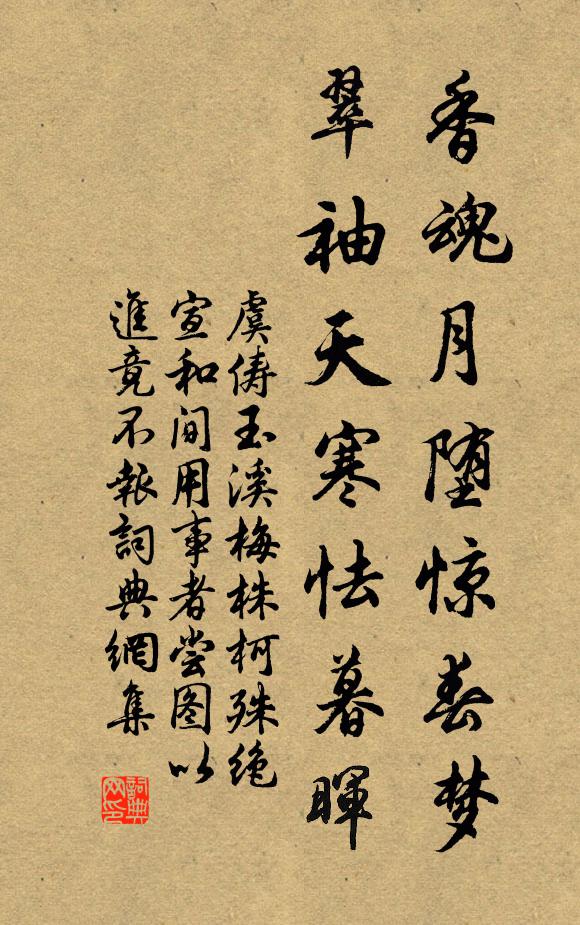 香魂月堕惊春梦
翠袖天寒怯暮暉
虞俦玉溪梅株柯殊绝
宣和间用事者尝图以
進竟不報詞典網集
詞典网印